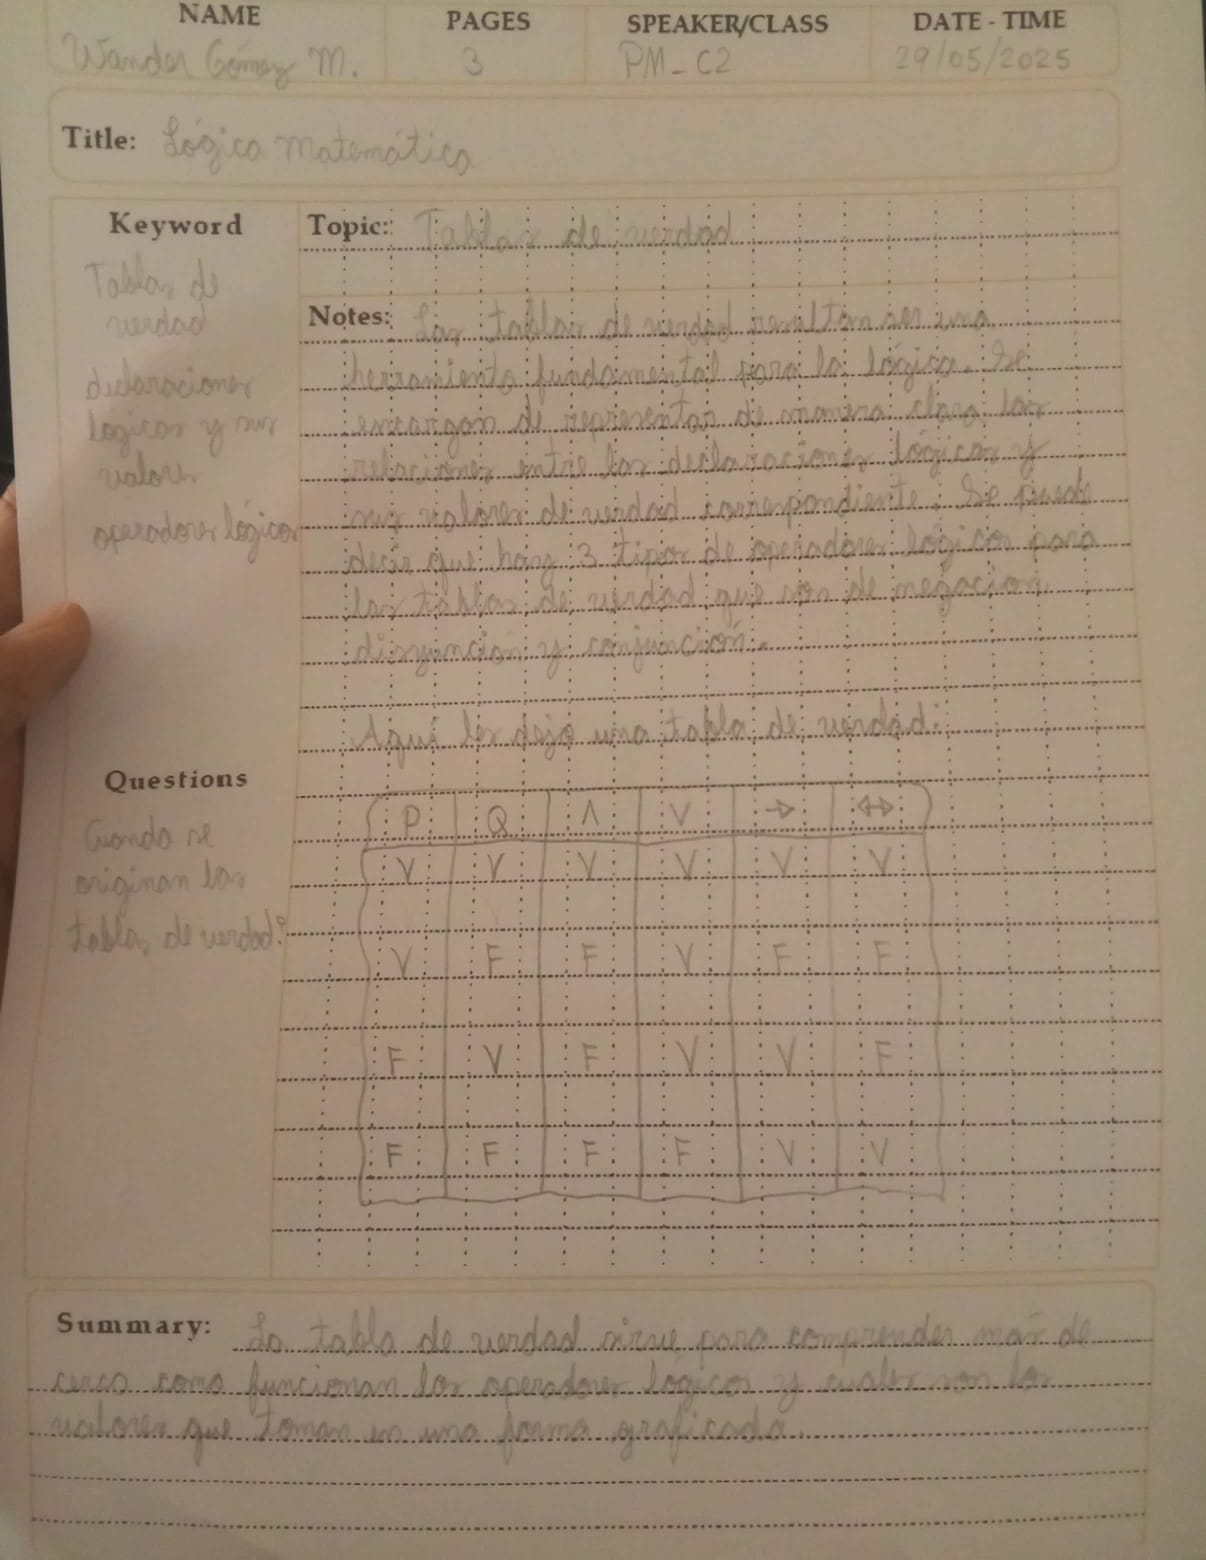 NAME PAGES SPEAKER/CLASS DATE - TIME
Wander Gómez M. 3 PM_C2 29/05/2025
Title: Lógica Matemática
Keyword
Tablas de
verdad
declaraciones
lógicas y sus
valores
operadores lógicos
Topic: Tablas de verdad
Notes: Las tablas de verdad resultan ser una
herramienta fundamental para la lógica. Se
encargan de representar de manera clara las
relaciones entre las declaraciones lógicas y
sus valores de verdad correspondiente. Se puede
decir que hay 3 tipos de operadores lógicos para
las tablas de verdad que son de negacion,
disyunción y conjunción.
Aquí les dejo una tabla de verdad:
Questions
Cuando se
originan las
tablas de verdad?
P Q Λ V → ↔
V V V V V V
V F F V F F
F V F V V F
F F F F V V
Summary: La tabla de verdad sirve para comprender mas de
cerca como funcionan los operadores lógicos y cuales son los
valores que toman en una forma graficada.